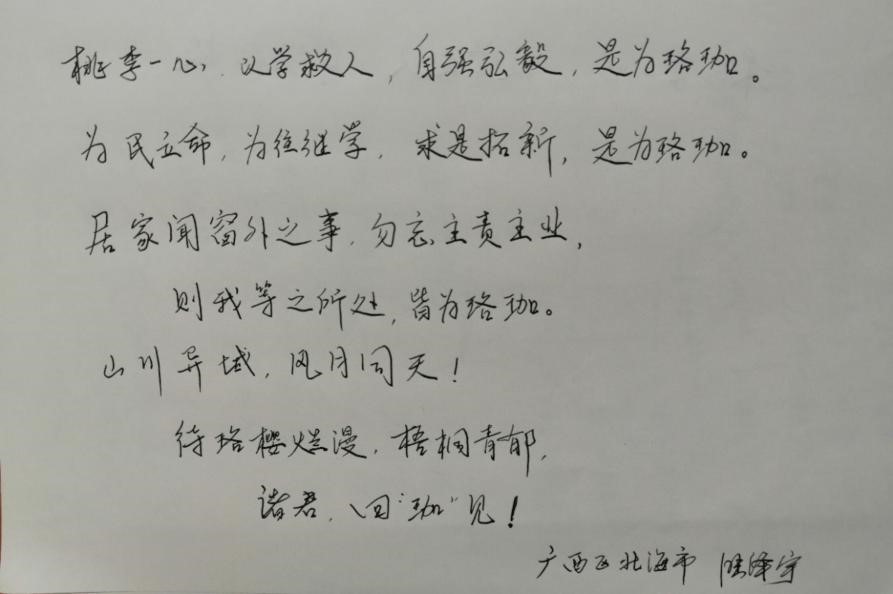 桃李一心，以学救人，自强弘毅，是为珞珈。
为民立命，为往继学，求是拓新，是为珞珈。
居家闻窗外之事，勿忘主责主业，
则我等之所处，皆为珞珈。
山川异域，风月同天！
待珞樱烂漫，梧桐青郁，
诸君，回“珈”见！
广西北海市 陆泽宇